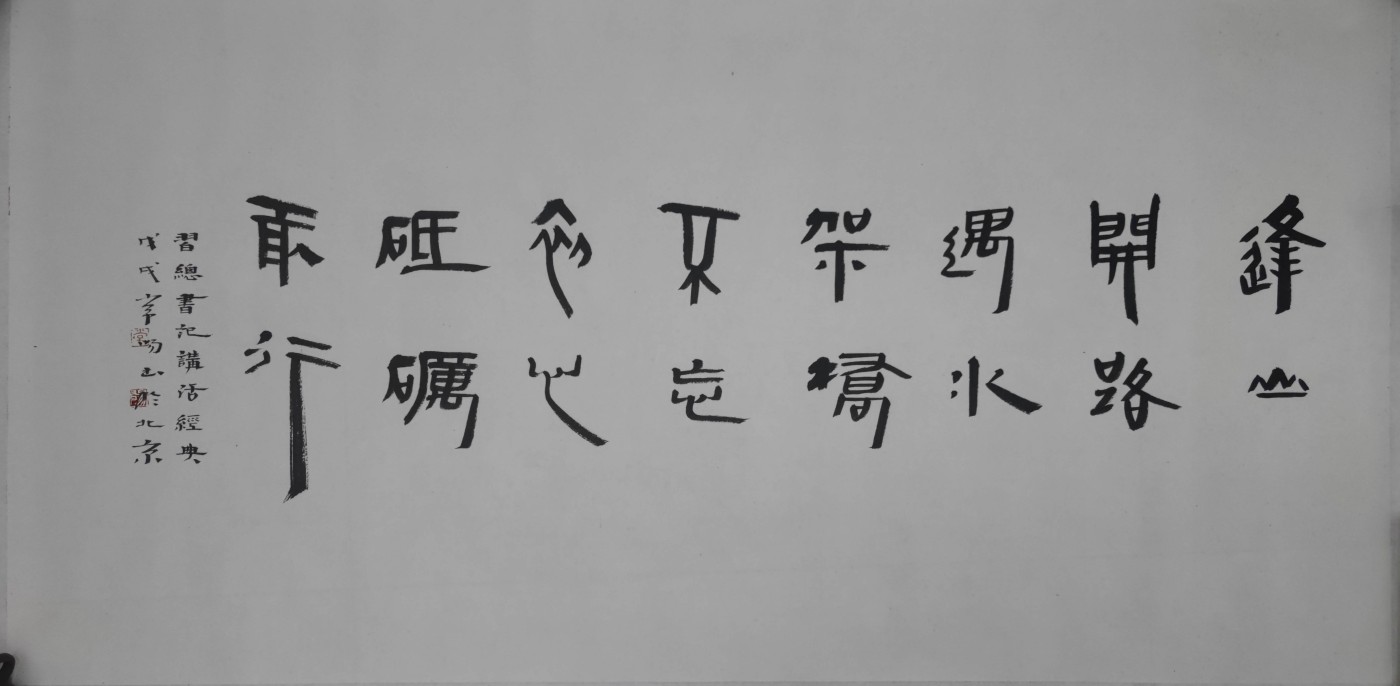 逢山
開路
遇水
架橋
不忘
初心
砥礪
前行
習總書記講話經典
戊戌 山於北京